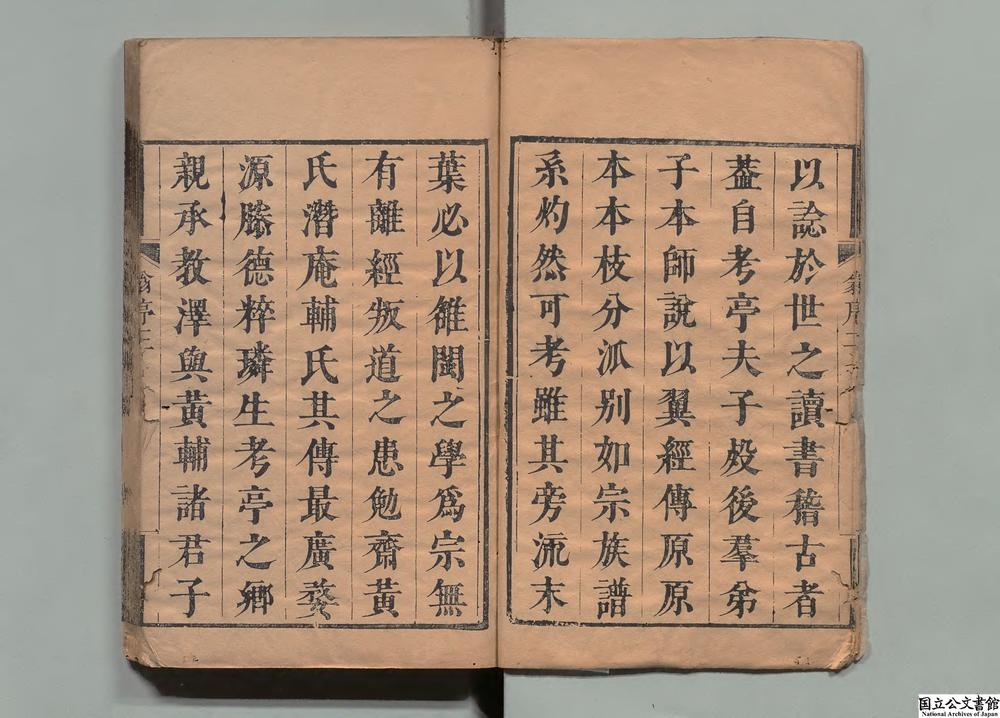 以諗於世之讀書稽古者
蓋自考亭夫子歿後羣弟
子本師說以翼經傳原原
本本枝分派别如宗族譜
系灼然可考雖其旁流末
葉必以雒閩之學爲宗無
有離經叛道之患勉齋黃
氏潛庵輔氏其傳最廣婺
源滕德粹璘生考亭之鄉
親承教澤與黃輔諸君子
国立公文書館
National Archives of Japan